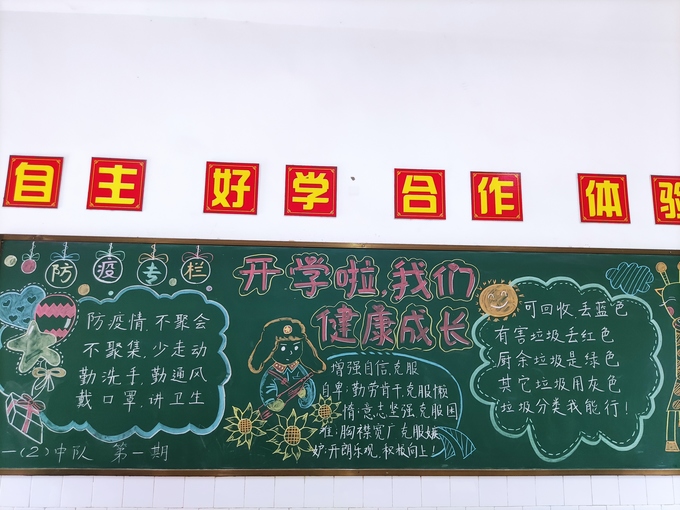 自主 好学 合作 体验
防疫专栏
防疫情,不聚会
不聚集,少走动
勤洗手,勤通风
戴口罩,讲卫生
一(2)中队 第一期
开学啦,我们
健康成长
增强自信,克服
自卑:勤劳肯干,克服懒
惰:意志坚强克服困
难:胸襟宽广克服嫉
妒:开朗乐观,积极向上!
可回收,丢蓝色
有害垃圾丢红色
厨余垃圾是绿色
其它垃圾用灰色
垃圾分类我能行!